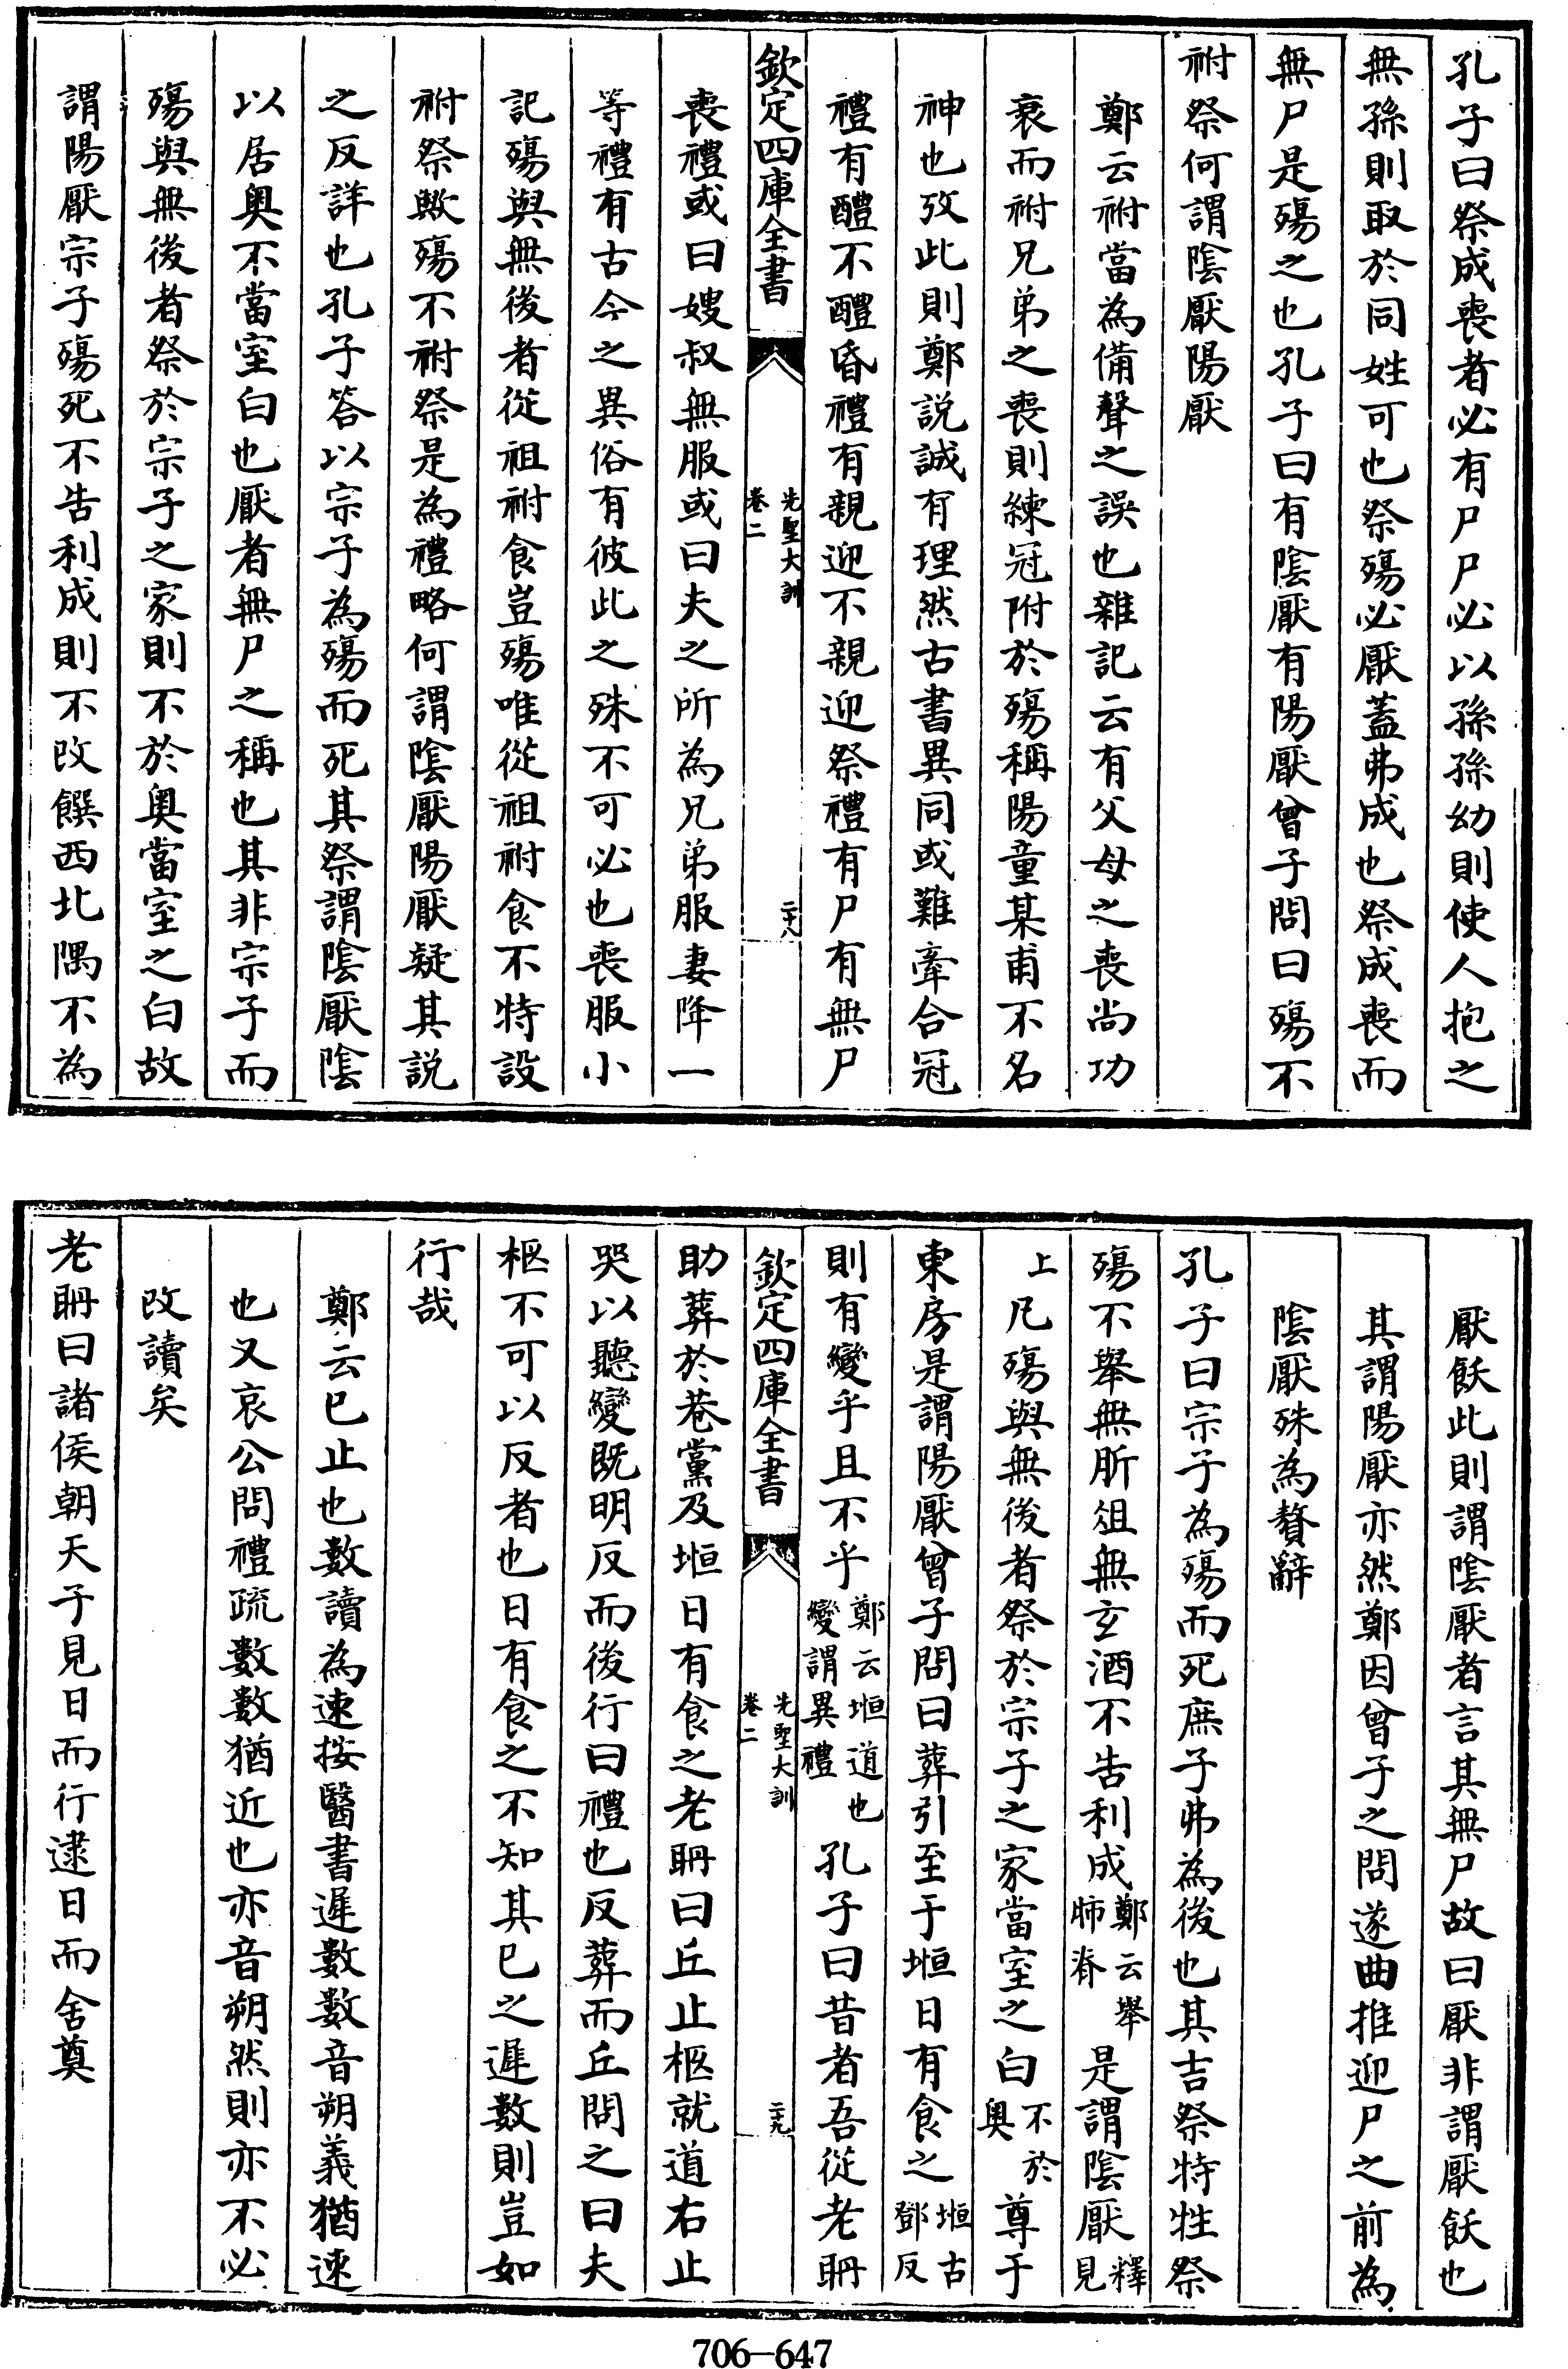 孔子曰祭成喪者必有尸尸必以孫孫幼則使人抱之
無孫則取於同姓可也祭殤必厭蓋弗成也祭成喪而
無尸是殤之也孔子曰有陰厭有陽厭曾子問曰殤不
祔祭何謂陰厭陽厭
鄭云祔當為備聲之誤也雜記云有父母之喪尚功
衰而祔兄弟之喪則練冠附於殤稱陽童某甫不名
神也攷此則鄭説誠有理然古書異同或難牽合冠
禮有醴不醴昏禮有親迎不親迎祭禮有尸有無尸
欽定四庫全書
先聖大訓
卷二
二十八
喪禮或曰嫂叔無服或曰夫之所為兄弟服妻降一
等禮有古今之異俗有彼此之殊不可必也喪服小
記殤與無後者從祖祔食豈殤唯從祖祔食不特設
祔祭歟殤不祔祭是為禮略何謂陰厭陽厭疑其説
之反詳也孔子答以宗子為殤而死其祭謂陰厭陰
以居奥不當室白也厭者無尸之稱也其非宗子而
殤與無後者祭於宗子之家則不於奥當室之白故
謂陽厭宗子殤死不告利成則不改饌西北隅不為
厭飫此則謂陰厭者言其無尸故曰厭非謂厭飫也
其謂陽厭亦然鄭因曾子之問遂曲推迎尸之前為
陰厭殊為贅辭
孔子曰宗子為殤而死庶子弗為後也其吉祭特牲祭
殤不舉無肵俎無玄酒不告利成鄭云舉肺脊是謂陰厭釋見
上凡殤與無後者祭於宗子之家當室之白不於奥尊于
東房是謂陽厭曾子問曰葬引至于堩日有食之堩古鄧反
則有變乎且不乎鄭云堩道也變謂異禮孔子曰昔者吾從老聃
欽定四庫全書
先聖大訓
卷二
二十九
助葬於巷黨及堩日有食之老聃曰丘止柩就道右止
哭以聽變既明反而後行曰禮也反葬而丘問之曰夫
柩不可以反者也日有食之不知其已之遲數則豈如
行哉
鄭云已止也數讀為速按醫書遲數數音朔義猶速
也又哀公問禮疏數數猶近也亦音朔然則亦不必
改讀矣
老聃曰諸侯朝天子見日而行逮日而舍奠
706-647